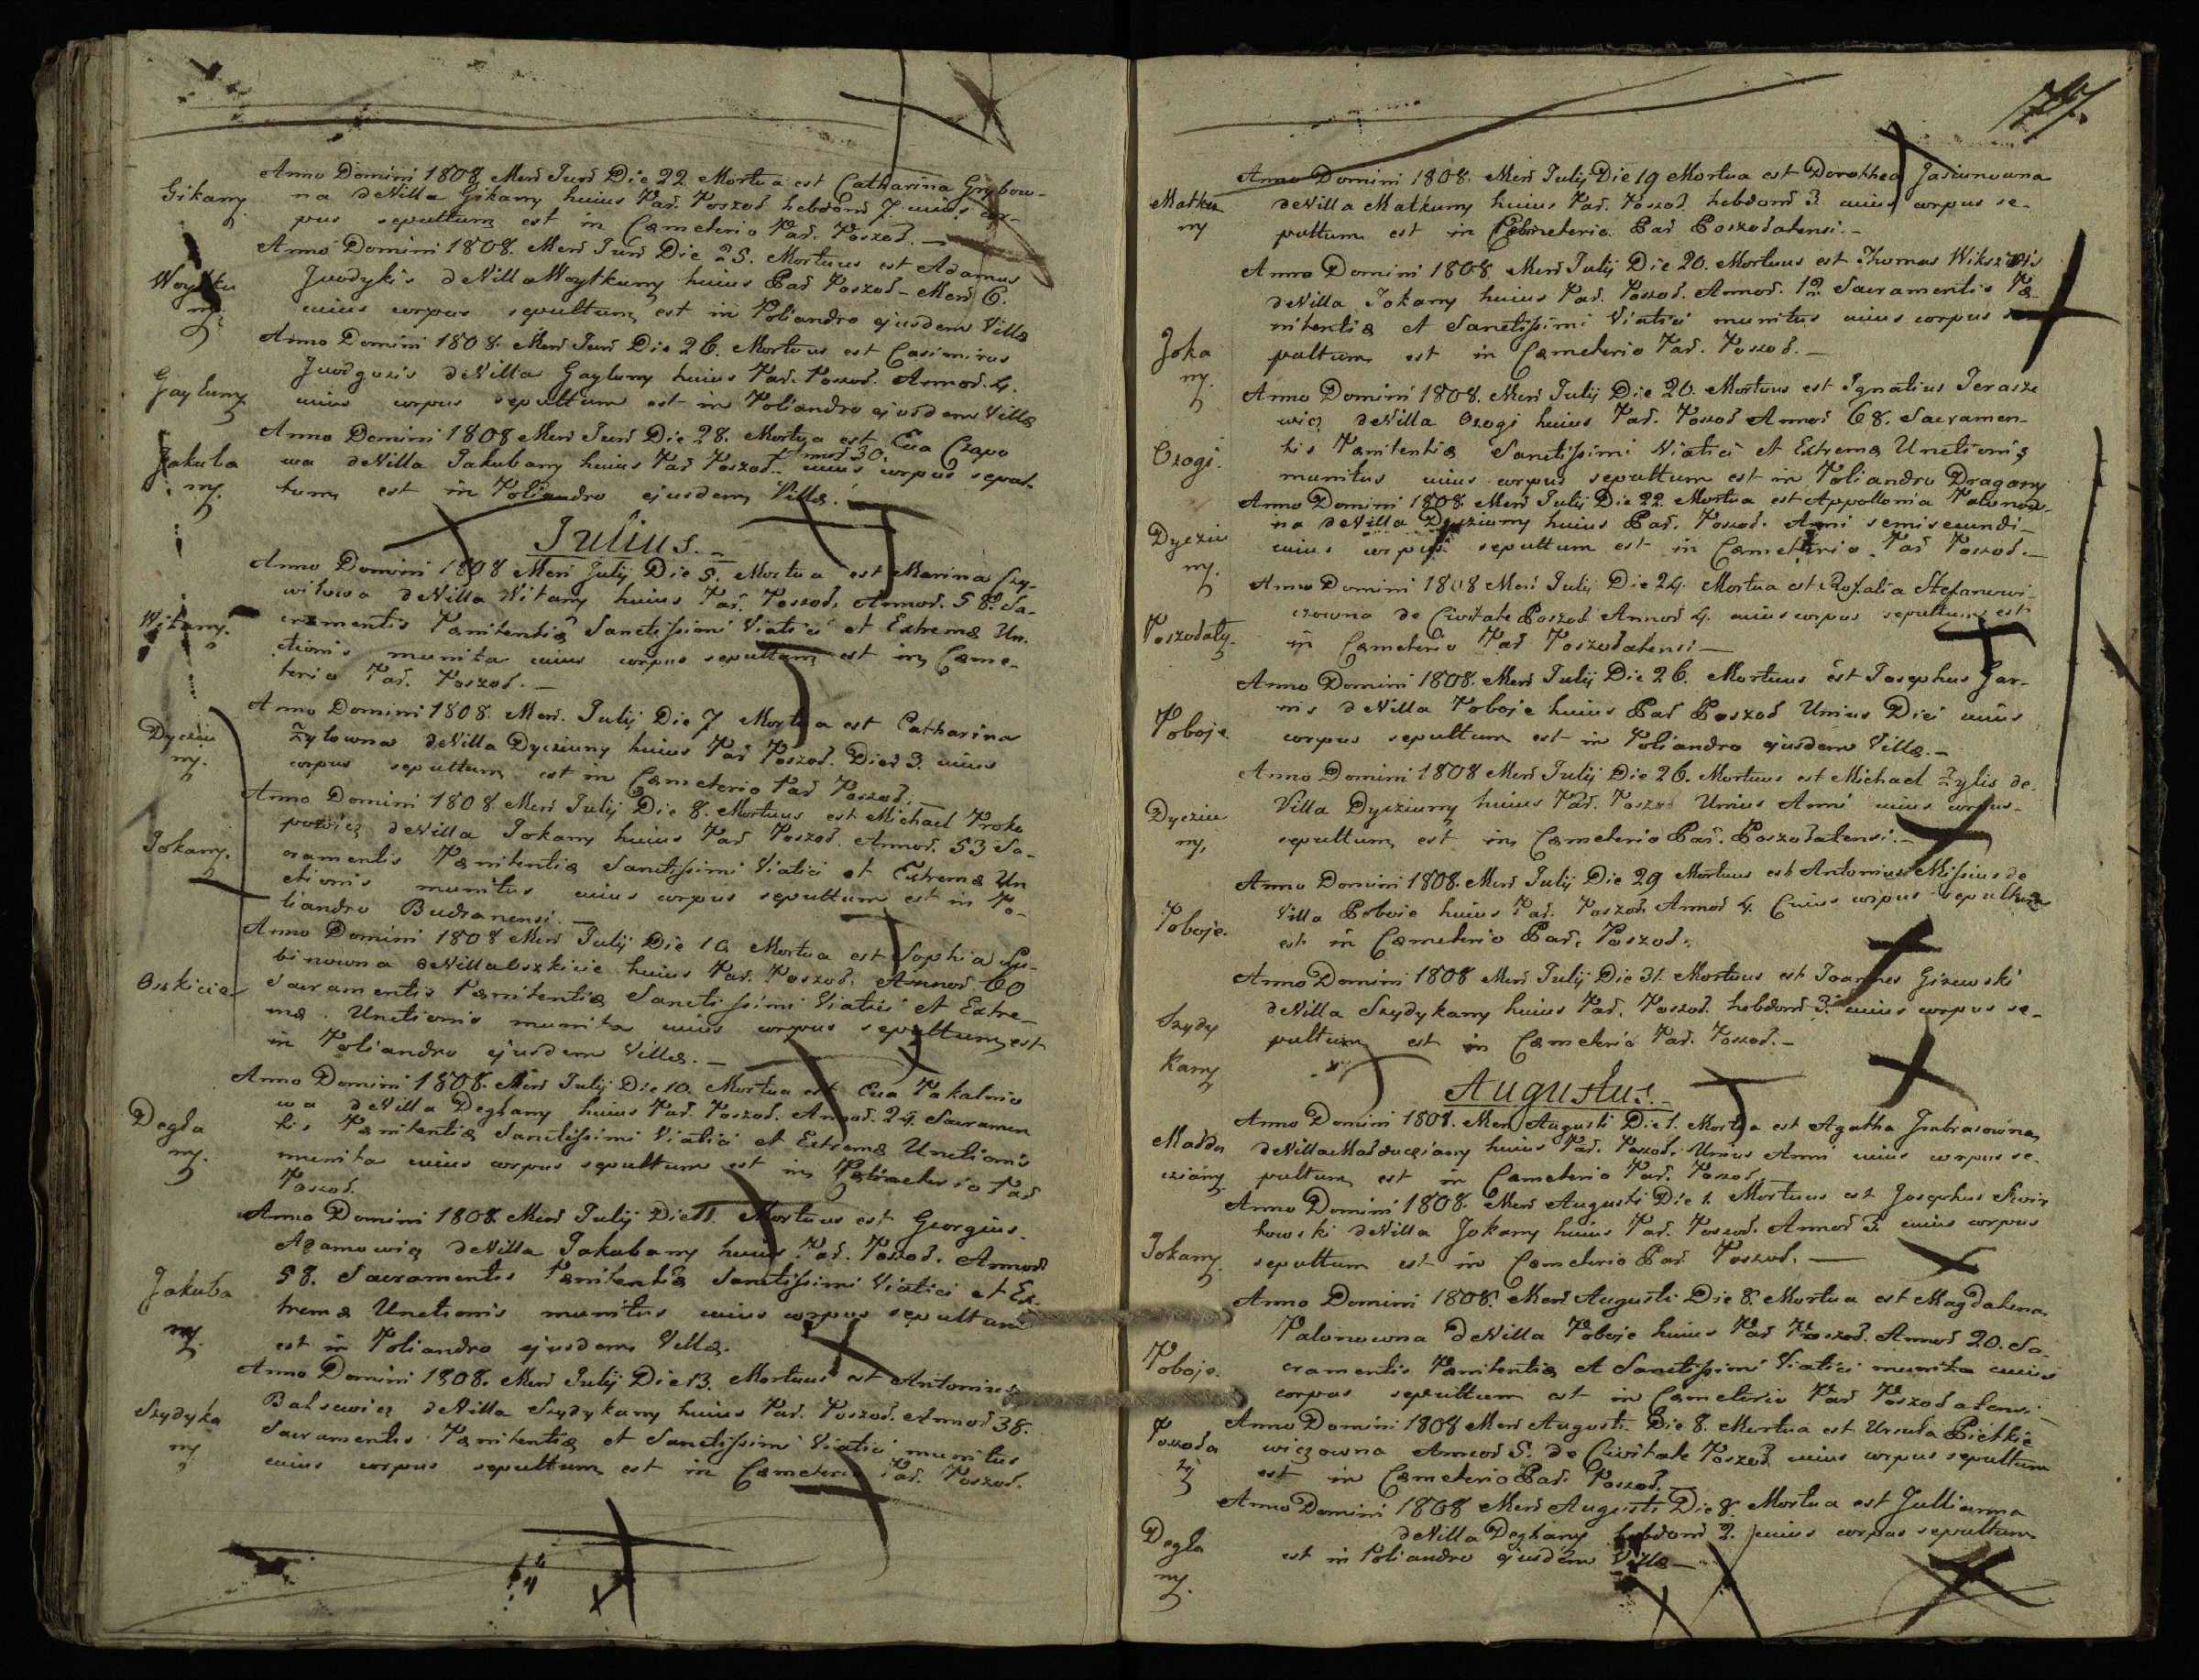 Gikany
Anno Domini 1808 Mens Juns Die 22 Mortua est Catharina Grybow-
na deVilla Gikany huius Par. Poszod. hebdom 7. cuius cor-
pus sepultum est in Cæmeterio Par. Poszod. —
Woytku
ny.
Anno Domini 1808. Mens Juns Die 25. Mortuus est Adamus
Juodykis deVilla Woytkuny huius Par Poszod - Mens 6.
cuius corpus sepultum est in Poliandro ejusdem Villæ
Gayluny
Anno Domini 1808. Mens Juns Die 26. Mortuus est Casimirus
deVilla Gayluny huius Par. Poszod. Annor. 4.
cuius corpus sepultum est in Poliandro ejusdem Villæ
Jakuba
ny.
Anno Domini 1808 Mens Juns Die 28. Mortua est Eua Czapo
wa deVilla Jakubany huius Par Poszod. Annor 30. cuius corpus sepul-
tum est in Poliandro ejusdem Villæ.
Julius. -
Witany.
Anno Domini 1808 Mens July Die 5. Mortua est Marina Szy-
witowa deVilla Witany huius Par. Poszod. Annor. 58. Sa-
cramentis Pænitentiæ Sanctissimi Viatici et Extremæ Un-
ctionis munita cuius corpus sepultum est in Cæme-
terio Par. Poszod. —
Dyeziu
ny.
Anno Domini 1808. Mens. July Die 7. Mortua est Catharina
Zylowna deVilla Dyeziuny huius Par Poszod. Dier 3. cuius
corpus sepultum est in Cæmeterio Par Poszod. —
Jokany.
Anno Domini 1808 Mens July Die 8. Mortuus est Michael Proko
powicz deVilla Jokany huius Par Poszod. Annor. 53 Sa-
cramentis Pænitentiæ Sanctissimi Viatici et Extremæ Un
ctionis munitus cuius corpus sepultum est in Po-
liandro Budranensi. —
Oszkicie
Anno Domini 1808 Mens July Die 10 Mortua est Sophia Lu-
binowna deVilla Oszkicie huius Par. Poszod. Annor. 60
Sacramentis Pænitentiæ Sanctissimi Viatici et Extre-
mæ Unctionis munita cuius corpus sepultum est
in Poliandro ejusdem Villæ. —
Degła
ny.
Anno Domini 1808. Mens July Die 10. Mortua est Eua Pakalnio
wa deVilla Degłany huius Par. Poszod. Annor. 24. Sacramen
tis Pænitentiæ Sanctissimi Viatici et Extremæ Unctionis
munita cuius corpus sepultum est in Cæmeterio Par
Poszod.
Jakuba
ny.
Anno Domini 1808. Mens July Die 11. Mortuus est Georgius
Adamowicz deVilla Jakubany huius Par. Poszod. Annor
58. Sacramentis Pænitentiæ Sanctissimi Viatici et Ex-
tremæ Unctionis munitus cuius corpus sepultum
est in Poliandro ejusdem Villæ.
Szydyka
ny
Anno Domini 1808. Mens July Die 13. Mortuus est Antonius
Balsewicz deVilla Szydykany huius Par. Poszod. Annor 38.
Sacramentis Pænitentiæ et Sanctissimi Viatici munitus
cuius corpus sepultum est in Cæmeterio Par. Poszod.
Matku
ny
Anno Domini 1808. Mens July Die 19 Mortua est Dorothea Jasiunowna
deVilla Matkuny huius Par. Poszod. hebdom 3 cuius corpus se-
pultum est in Cæmeterio Par Poszodatensi. -
Joka
ny.
Anno Domini 1808 Mens July Die 20. Mortuus est Thomas
deVilla Jokany huius Par. Poszod. Annor. 12. Sacramentis Pæ-
nitentiæ et Sanctissimi Viatici munitus cuius corpus se
pultum est in Cæmeterio Par. Poszod. —
Ozogi.
Anno Domini 1808. Mens July Die 20. Mortuus est Ignatius Jerasze
wicz deVilla Ozogi huius Par. Poszod Annor 68. Sacramen-
tis Pænitentiæ Sanctissimi Viatici et Extremæ Unctionis
munitus cuius corpus sepultum est in Poliandro Dragany
Dyeziu
ny.
Anno Domini 1808 Mens July Die 22. Mortua est Appollonia Palonow-
na deVilla Dyeziuny huius Par. Poszod. Anni semisecundi
cuius corpus sepultum est in Cæmeterio Par Poszod. —
Poszodaty.
Anno Domini 1808 Mens July Die 24. Mortua est Rosalia Stefanowi-
czowna de Civitate Poszod Annor 4. cuius corpus sepultum est
in Cæmeterio Par Poszodatensi —
Poboje
Anno Domini 1808. Mens July Die 26. Mortuus est Josephus Gar-
nis deVilla Poboje huius Par Poszod Unius Diei cuius
corpus sepultum est in Poliandro ejusdem Villæ. -
Dyeziu
ny,
Anno Domini 1808 Mens July Die 26. Mortuus est Michael Zylis de
Villa Dyeziuny huius Par. Poszod Unius Anni cuius corpus
sepultum est in Cæmeterio Par. Poszodatensi. -
Poboje.
Anno Domini 1808. Mens July Die 29 Mortuus est Antonius Missius de
Villa Poboie huius Par. Poszod. Annor 4. Cuius corpus sepultum
est in Cæmeterio Par. Poszod.
Szydy
kany
Anno Domini 1808 Mens July Die 31. Mortuus est Joannes Gizewski
deVilla Szydykany huius Par. Poszod. hebdom 3. cuius corpus se-
pultum est in Cæmeterio Par. Poszod. -
Augustus. -
Anno Domini 1808. Mens Augusti Die 1. Mortua est Agatha Imbrasowna
cuius corpus se-
pultum est in Cæmeterio Par. Poszod.
Jokany
Anno Domini 1808. Mens Augusti Die 1. Mortuus est Josephus Kwir
kowski deVilla Jokany huius Par. Poszod. Annor 3. cuius corpus
sepultum est in Cæmeterio Par Poszod. —
Poboje.
Anno Domini 1808. Mens Augusti Die 8. Mortua est Magdalena
Palonowna deVilla Poboje huius Par Poszod. Annor 20. Sa-
cramentis Pænitentiæ et Sanctissimi Viatici munita cuius
corpus sepultum est in Cæmeterio Par Poszodatensi —
Poszoda
ty
Anno Domini 1808 Mens Augusti Die 8. Mortua est Ursula Pietkie
wiczowna Annor 5. de Civitate Poszod cuius corpus sepultum
est in Cæmeterio Par. Poszod. —
Degła
ny.
Anno Domini 1808 Mens Augusti Die 8. Mortua est Jullianna
deVilla Degłany hebdom 2. cuius corpus sepultum
est in Poliandro ejusdem Villæ —